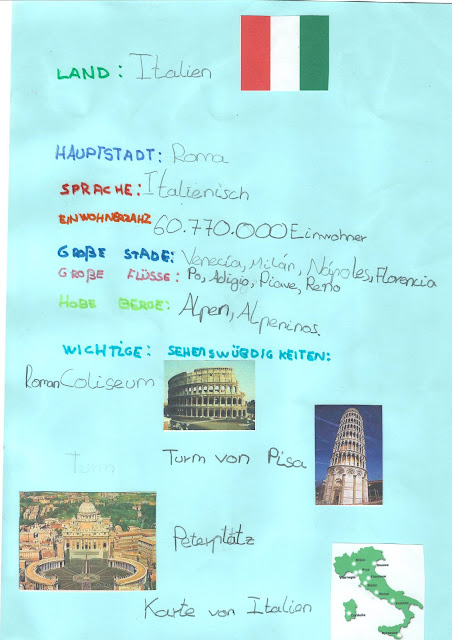 LAND: Italien
HAUPTSTADT: Roma
SPRACHE: Italienisch
EINWOHNERZAHZ 60.770.000 Einwohner
GROßE STADE: Venecia, Milán, Nápoles, Florencia
GROßE FLÜSSE: Po, Adigio, Piave, Reno
HOBE BERGE: Alpen, Alpeninos.
WICHTIGE: SEHENSWÜBDIGKEITEN:
Roman Coliseum
Turm von Pisa
Turm
Peterplätz
Karte von Italien